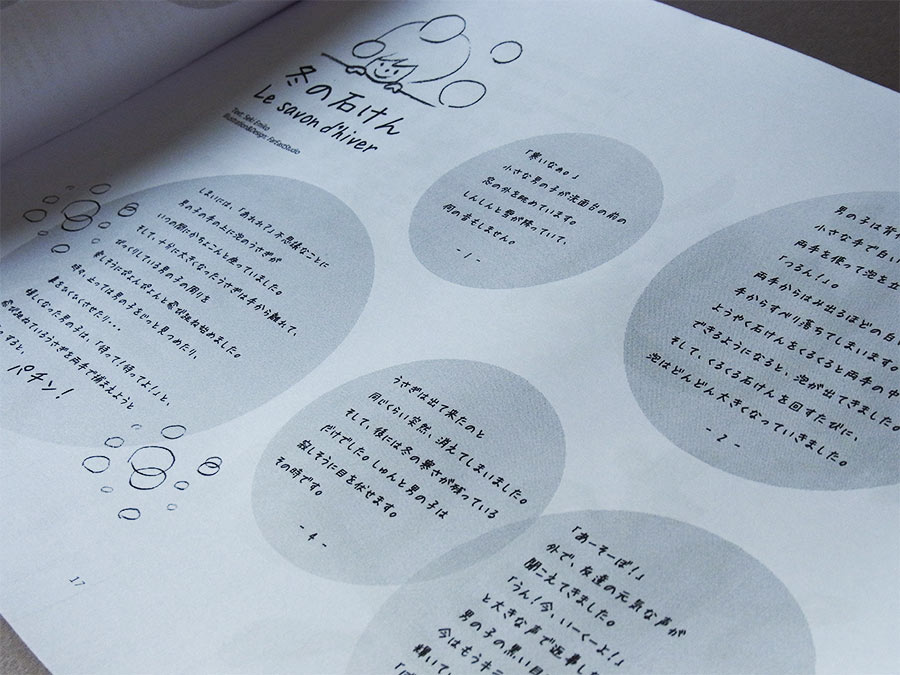 冬の石けん
Le savon d'hiver
Text: Seki Emiko
Illustration&Design: FanfareStudio
「寒いなぁ。」
小さな男の子が洗面台の前の
窓の外を眺めています。
しんしんと雪が降っていて、
何の音もしません。
- 1 -
男の子は背
小さな手で白い
両手を使って泡を立
「つるん!」。
両手からはみ出るほどの白い
手からすべり落ちてしまいます。
ようやく石けんをくるくると両手の中
できるようになると、泡が出てきました。
そして、くるくる石けんを回すたびに、
泡はどんどん大きくなっていきました。
- 2 -
しまいには、「あれれ?」不思議なことに
男の子の手の上に泡のうさぎが
いつの間にかちょこんと座っていました。
そして、十分に大きくなったうさぎは手から離れて、
びっくりしている男の子の周りを
楽しそうにぴょんぴょんと飛び跳ね始めました。
時々、止っては男の子をじっと見つめたり、
鼻をひくひくさせたり・・・
嬉しくなった男の子は、「待って!待ってよ!」と、
飛び跳ねているうさぎを両手で捕まえようと
すると、
パチン!
うさぎは出て来たのと
同じくらい突然、消えてしまいました。
そして、後には冬の寒さが残っている
だけでした。しゅんと男の子は
寂しそうに目を伏せます。
その時です。
- 4 -
「あーそーぼ!」
外で、友達の元気な声が
聞こえてきました。
「うん!今、いーくーよ!」
と大きな声で返事し
男の子の黒い目
今はもうキラ
輝いて
17